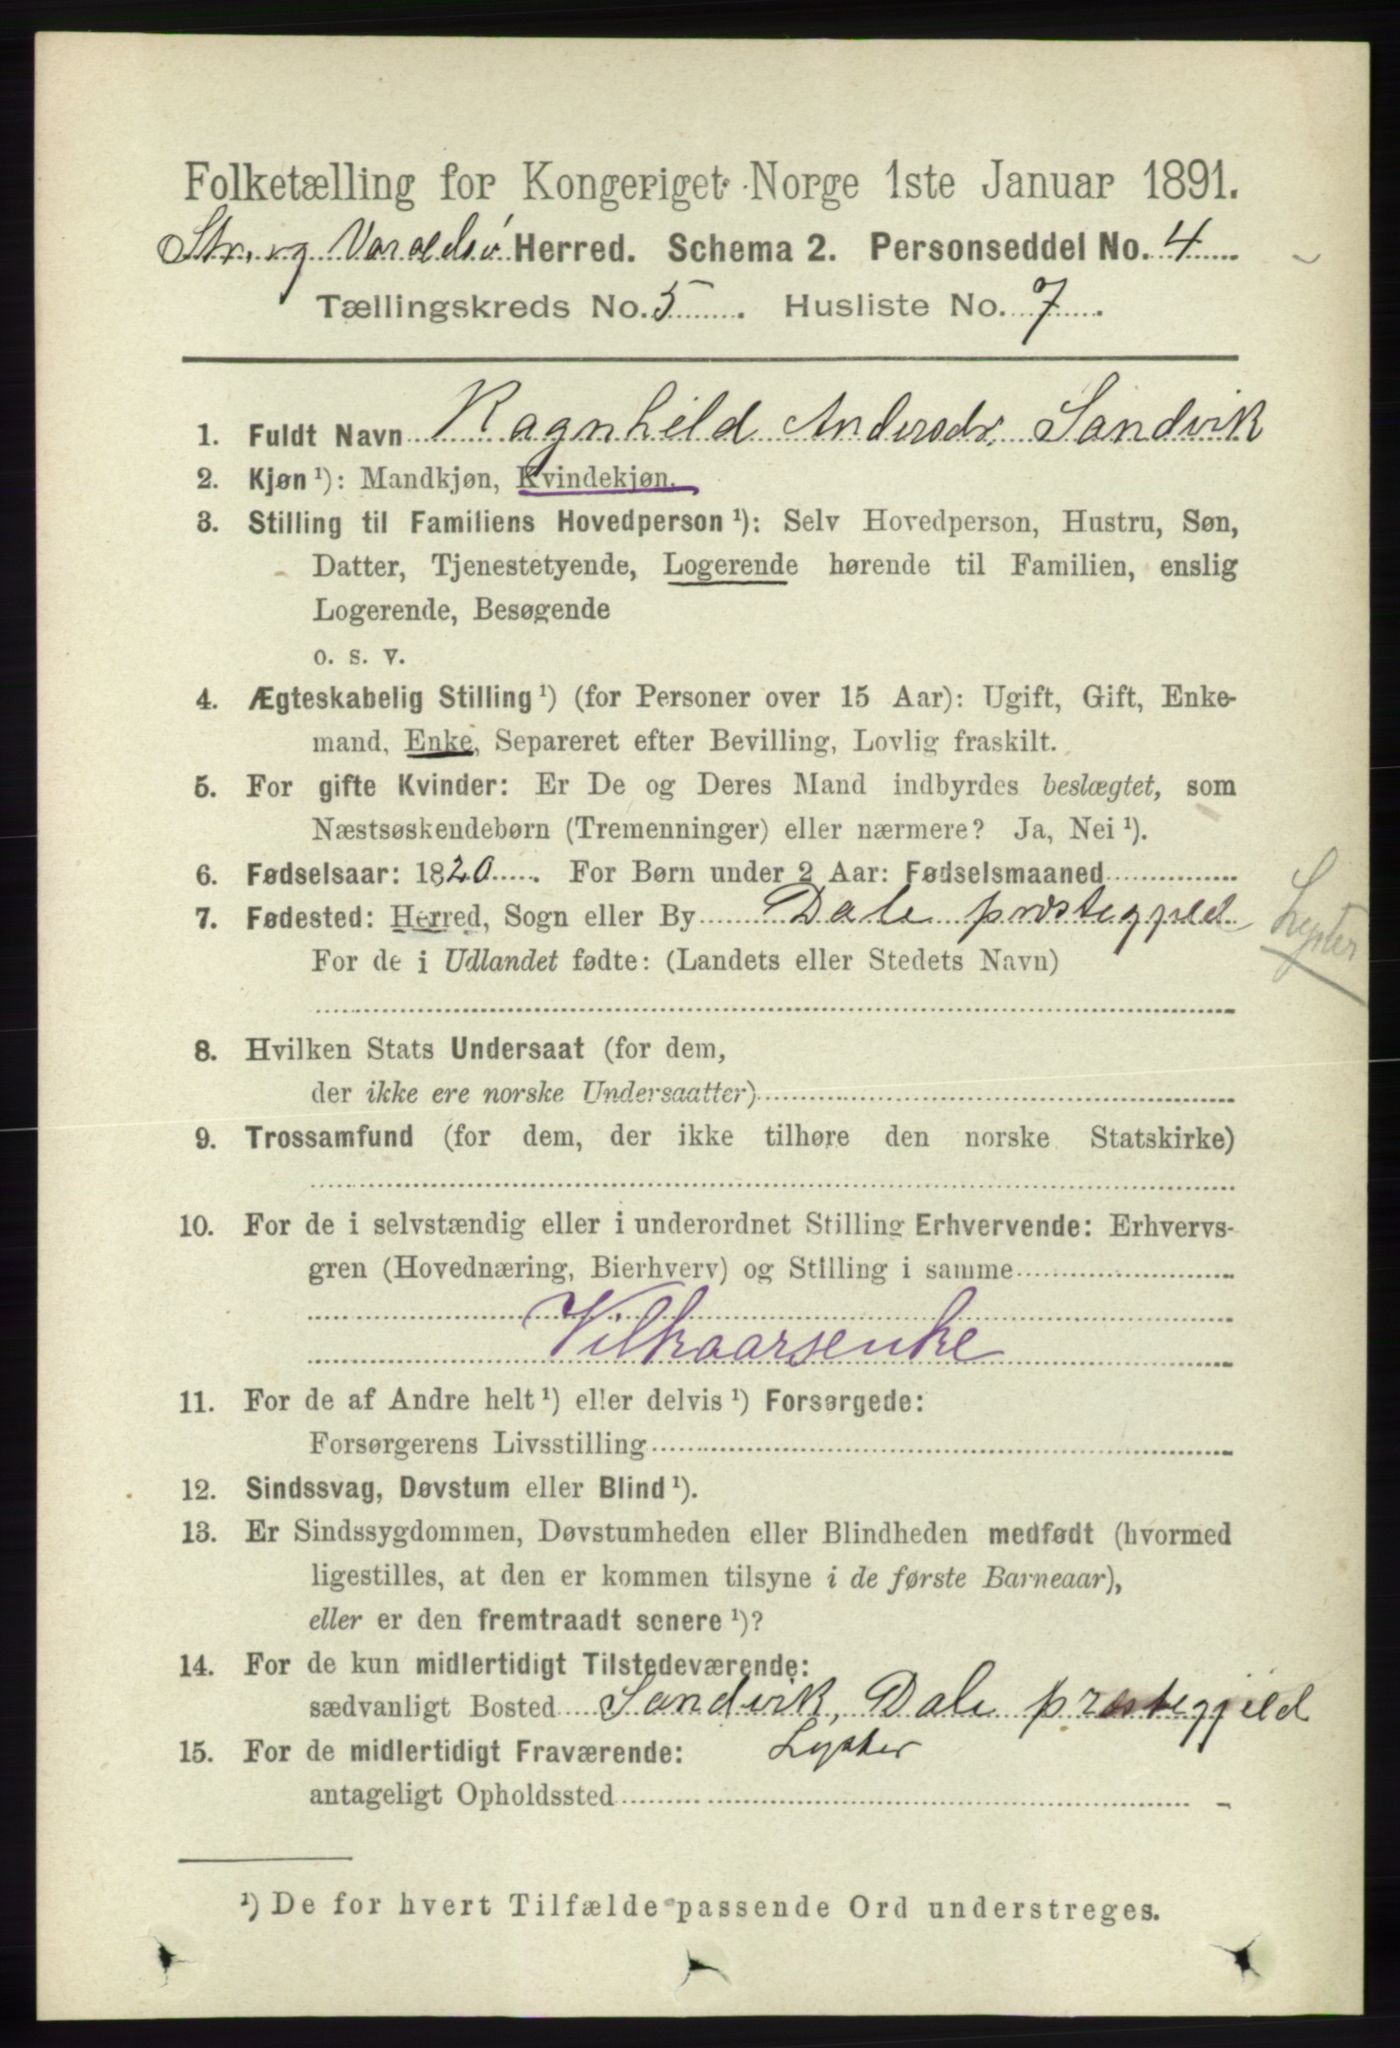 Folketælling for Kongeriget Norge 1ste Januar 1891.
Str. og Varaldsø Herred. Schema 2. Personseddel No. 4
Tællingskreds No. 5. Husliste No. 7.
1. Fuldt Navn Ragnhild Andersdr. Sandvik
2. Kjøn ¹): Mandkjøn, Kvindekjøn.
3. Stilling til Familiens Hovedperson ¹): Selv Hovedperson, Hustru, Søn,
Datter, Tjenestetyende, Logerende hørende til Familien, enslig
Logerende, Besøgende
o. s. v.
4. Ægteskabelig Stilling ¹) (for Personer over 15 Aar): Ugift, Gift, Enke-
mand, Enke, Separeret efter Bevilling, Lovlig fraskilt.
5. For gifte Kvinder: Er De og Deres Mand indbyrdes beslægtet, som
Næstsøskendebørn (Tremenninger) eller nærmere? Ja, Nei ¹).
6. Fødselsaar: 1820. For Børn under 2 Aar: Fødselsmaaned
7. Fødested: Herred, Sogn eller By Dale præstegjeld
Lyster
For de i Udlandet fødte: (Landets eller Stedets Navn)
8. Hvilken Stats Undersaat (for dem,
der ikke ere norske Undersaatter)
9. Trossamfund (for dem, der ikke tilhøre den norske Statskirke)
10. For de i selvstændig eller i underordnet Stilling Erhvervende: Erhvervs-
gren (Hovednæring, Bierhverv) og Stilling i samme
Vilkaarsenke
11. For de af Andre helt ¹) eller delvis ¹) Forsørgede:
Forsørgerens Livsstilling
12. Sindssvag, Døvstum eller Blind ¹).
13. Er Sindssygdommen, Døvstumheden eller Blindheden medfødt (hvormed
ligestilles, at den er kommen tilsyne i de første Barneaar),
eller er den fremtraadt senere ¹)?
14. For de kun midlertidigt Tilstedeværende:
sædvanligt Bosted Sandvik, Dale præstegjeld
Lyster
15. For de midlertidigt Fraværende:
antageligt Opholdssted
¹) De for hvert Tilfælde passende Ord understreges.